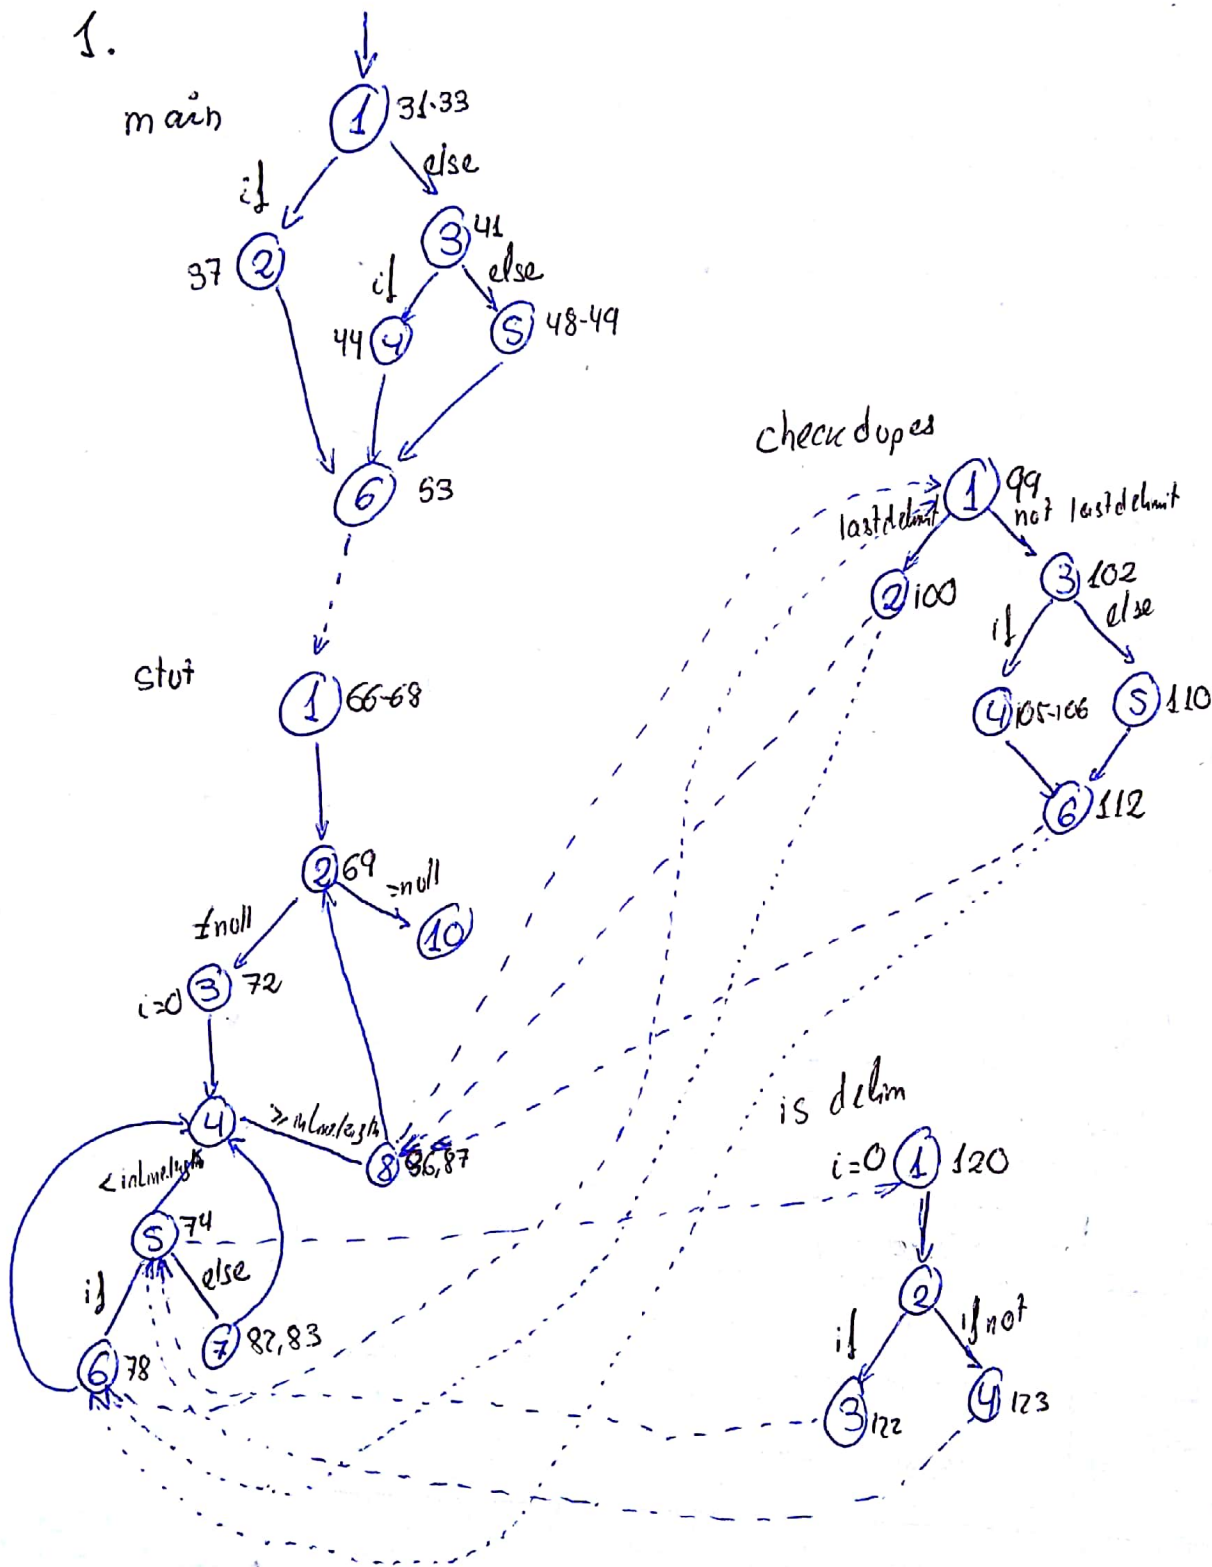 1.
main
1 31-33
if
else
37 2
3 41
if
else
44 4
5 48-49
6 53
stut
1 66-68
2 69
=null
≠null
10
i=0 3 72
4
≥ inLine.length
8 86,87
< inLine.length
5 74
if
else
6 78
7 82,83
checkdupes
1 99
lastdelimit
not lastdelimit
2 100
3 102
if
else
4 105-106
5 110
6 112
is delim
i=0 1 120
2
if
if not
3 122
4 123